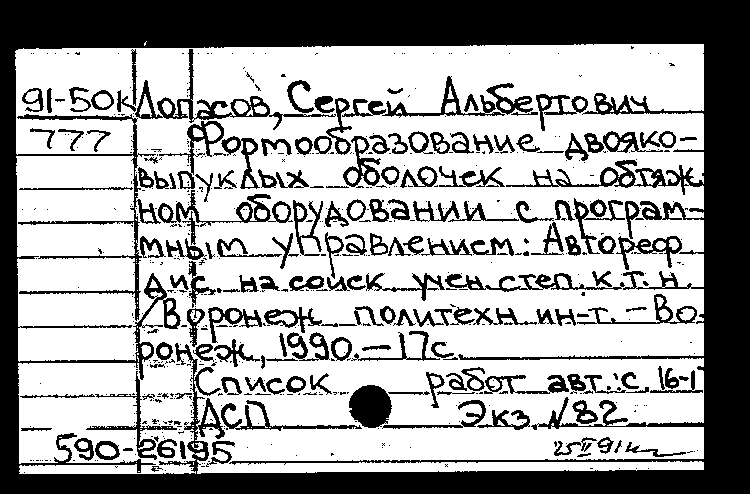 91-50к Лопасов, Сергей Альбертович
777 Формообразование двояко-
выпуклых оболочек на обтяж
ном оборудовании с програм-
мным управлением: Автореф
дис. на соиск. учен. степ. к.т.н.
/Воронеж политехн. ин-т. — Во-
ронеж, 1990. — 17с.
Список работ авт.: с. 16-1
ДСП Экз. N82
590-26195 25 II 91